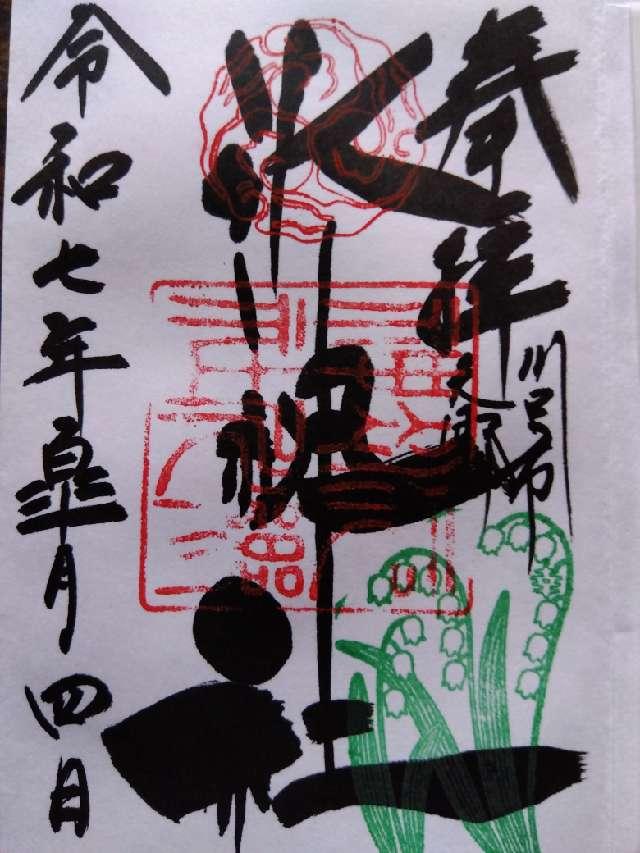 奉拝
川口市
元郷
氷川神社
令和七年皐月四日